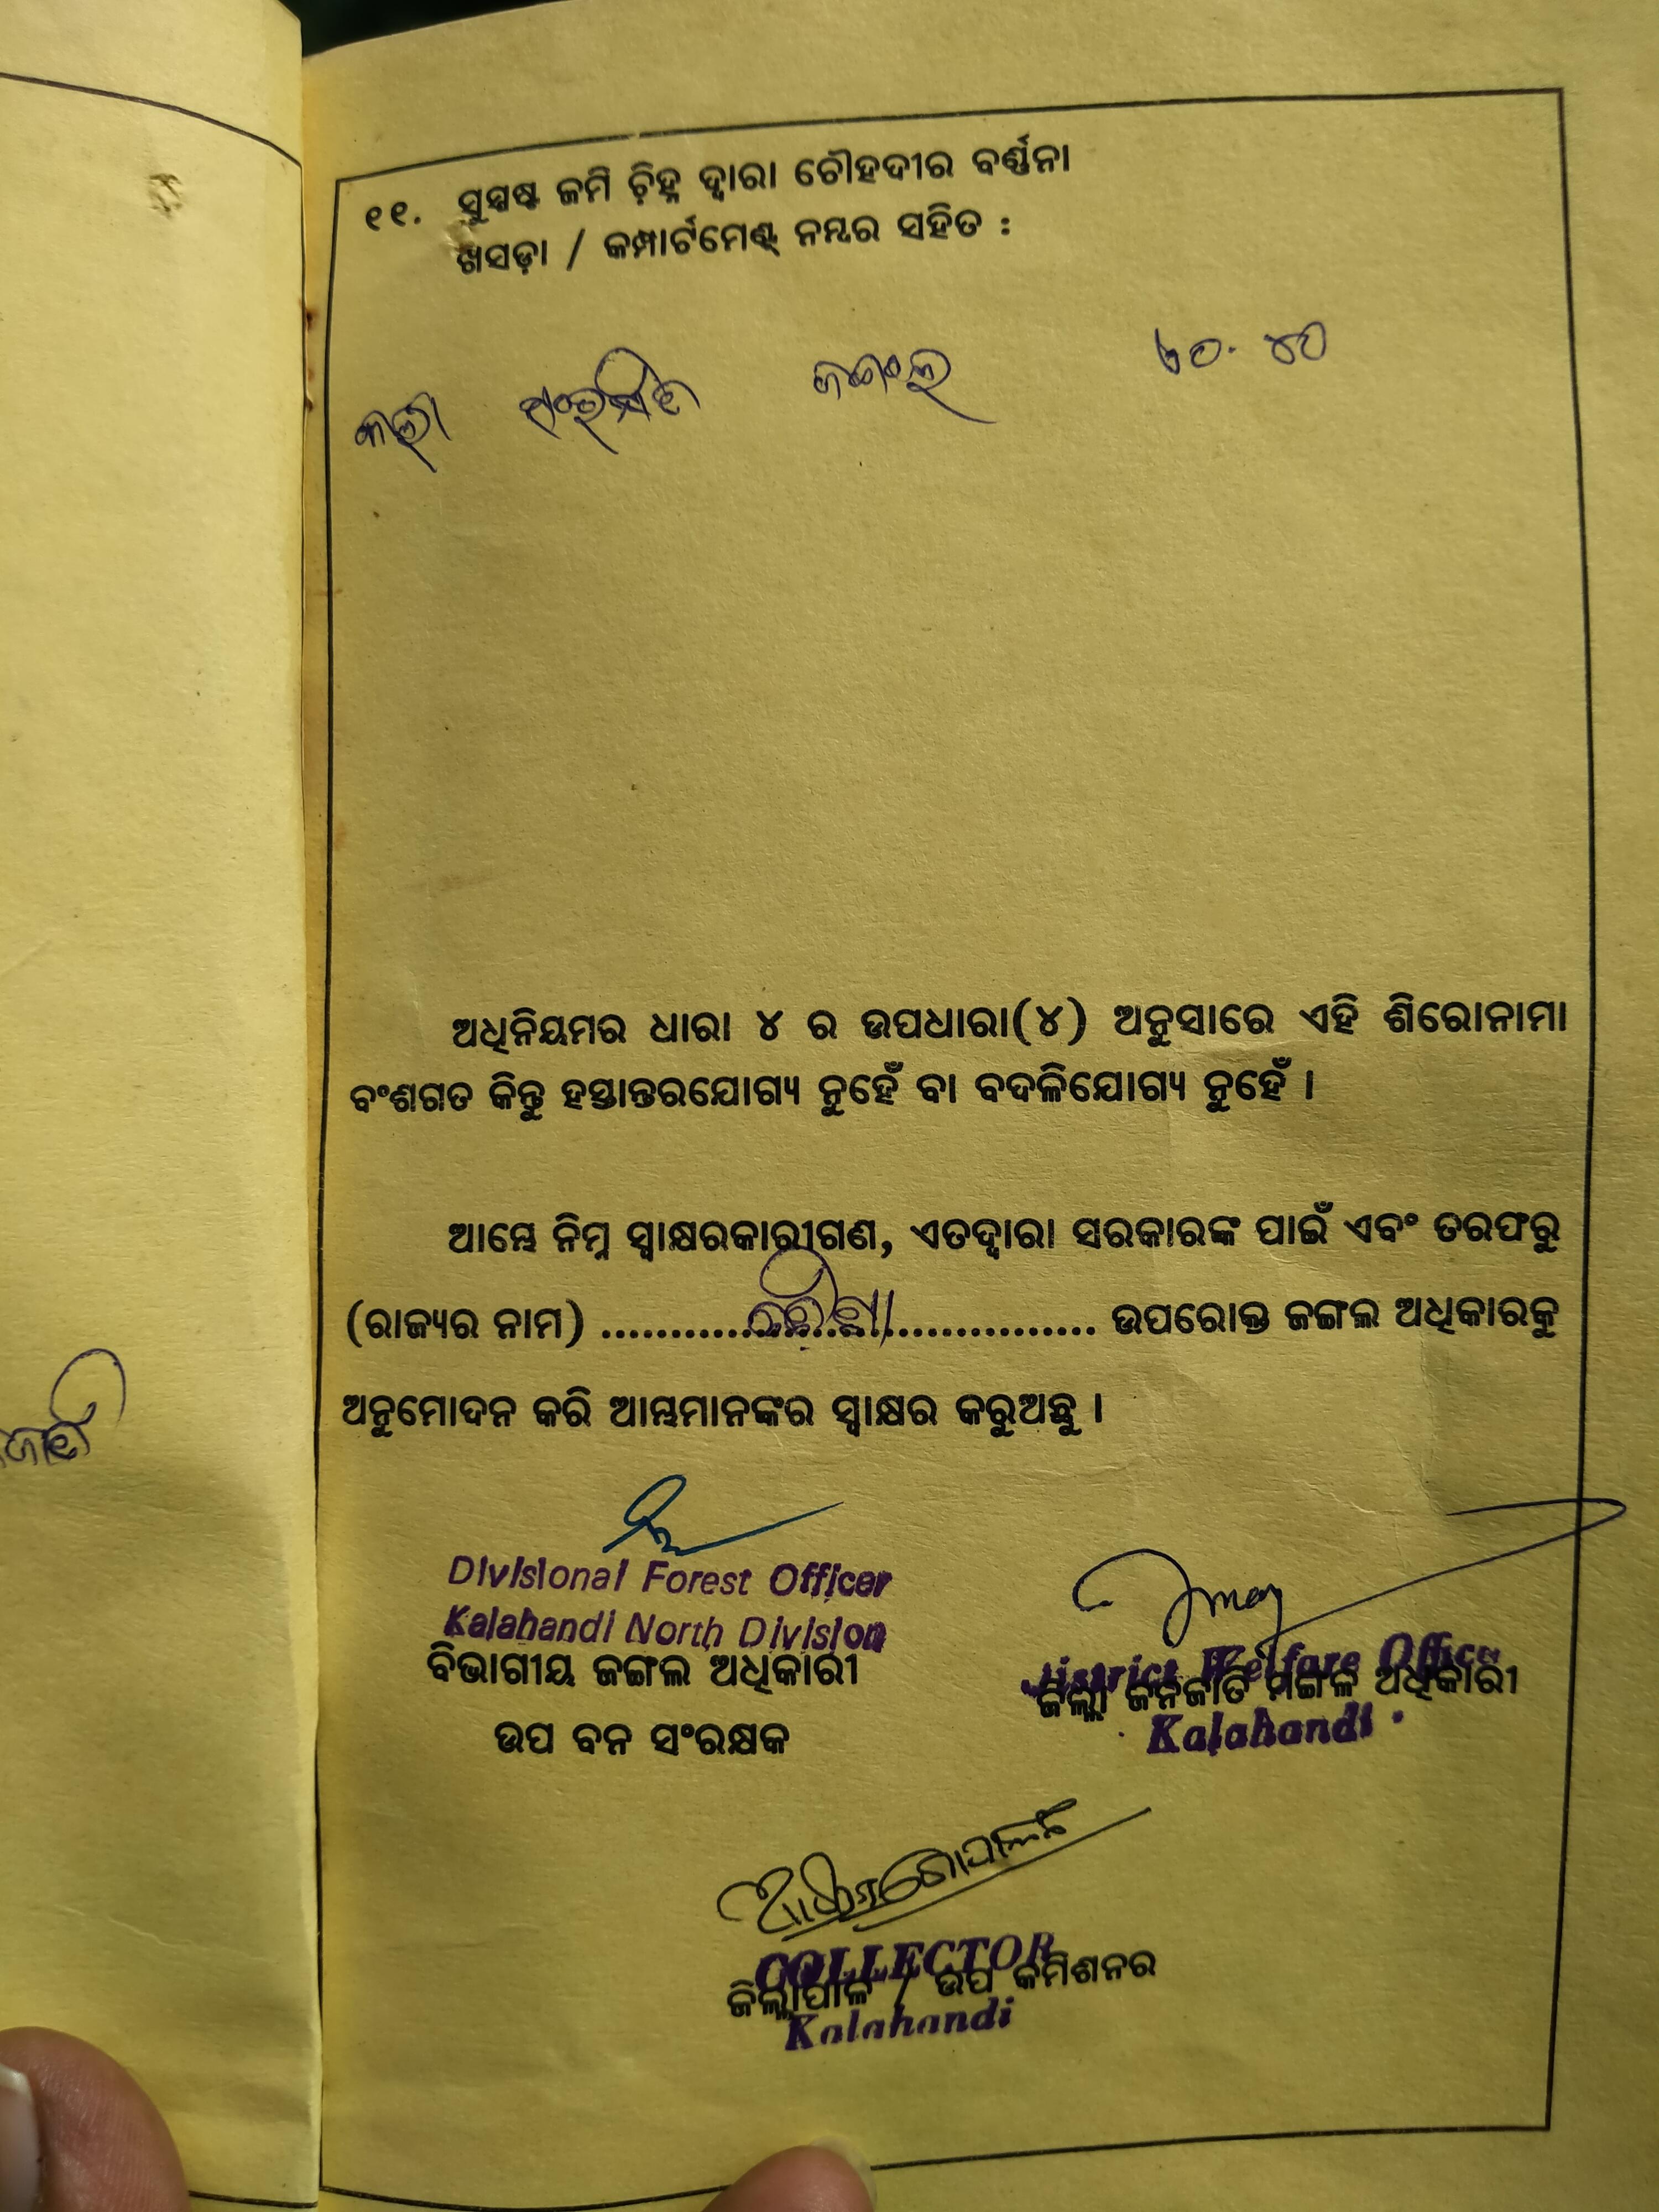 ୧୧. ସୁସ୍ପଷ୍ଟ ଜମି ଚ଼ିହ୍ନ ଦ୍ୱାରା ଚୌହଦୀର ବର୍ଣ୍ଣନା
ଖସଡ଼ା / କମ୍ପାର୍ଟମେଣ୍ଟ୍ ନମ୍ବର ସହିତ :
ସଂରକ୍ଷିତ ଜଙ୍ଗଲ ୬୦.୪୦
ଅଧିନିୟମର ଧାରା ୪ ର ଉପଧାରା(୪) ଅନୁସାରେ ଏହି ଶିରୋନାମା
ବଂଶଗତ କିନ୍ତୁ ହସ୍ତାନ୍ତରଯୋଗ୍ୟ ନୁହେଁ ବା ବଦଳିଯୋଗ୍ୟ ନୁହେଁ ।
ଆମ୍ଭେ ନିମ୍ନ ସ୍ୱାକ୍ଷରକାରୀଗଣ, ଏତଦ୍ୱାରା ସରକାରଙ୍କ ପାଇଁ ଏବଂ ତରଫରୁ
(ରାଜ୍ୟର ନାମ) .......... ଓଡ଼ିଶା .......... ଉପରୋକ୍ତ ଜଙ୍ଗଲ ଅଧିକାରକୁ
ଅନୁମୋଦନ କରି ଆମ୍ଭମାନଙ୍କର ସ୍ୱାକ୍ଷର କରୁଅଛୁ ।
Divisional Forest Officer
Kalahandi North Division
ବିଭାଗୀୟ ଜଙ୍ଗଲ ଅଧିକାରୀ
ଉପ ବନ ସଂରକ୍ଷକ
District Welfare Officer
ଜିଲ୍ଲା ଜନଜାତି ମଙ୍ଗଳ ଅଧିକାରୀ
Kalahandi
COLLECTOR
ଜିଲ୍ଲାପାଳ / ଉପ କମିଶନର
Kalahandi